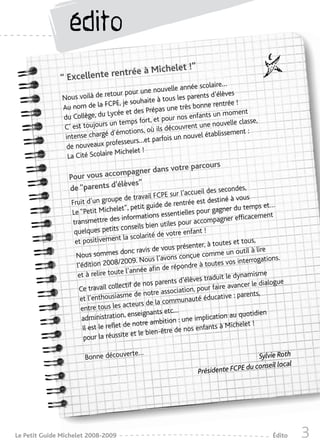 édito
" Excellente rentrée à Michelet !"
Nous voilà de retour pour une nouvelle année scolaire...
Au nom de la FCPE, je souhaite à tous les parents d'élèves
du Collège, du Lycée et des Prépas une très bonne rentrée !
C' est toujours un temps fort, et pour nos enfants un moment
intense chargé d'émotions, où ils découvrent une nouvelle classe,
de nouveaux professeurs...et parfois un nouvel établissement :
La Cité Scolaire Michelet !
Pour vous accompagner dans votre parcours
de "parents d'élèves"
Fruit d'un groupe de travail FCPE sur l'accueil des secondes,
Le "Petit Michelet", petit guide de rentrée est destiné à vous
transmettre des informations essentielles pour gagner du temps et...
quelques petits conseils bien utiles pour accompagner efficacement
et positivement la scolarité de votre enfant !
Nous sommes donc ravis de vous présenter, à toutes et tous,
l'édition 2008/2009. Nous l'avons conçue comme un outil à lire
et à relire toute l'année afin de répondre à toutes vos interrogations.
Ce travail collectif de nos parents d'élèves traduit le dynamisme
et l'enthousiasme de notre association, pour faire avancer le dialogue
entre tous les acteurs de la communauté éducative : parents,
administration, enseignants etc...
Il est le reflet de notre ambition : une implication au quotidien
pour la réussite et le bien-être de nos enfants à Michelet !
Bonne découverte...
Sylvie Roth
Présidente FCPE du conseil local
Le Petit Guide Michelet 2008-2009
Édito 3